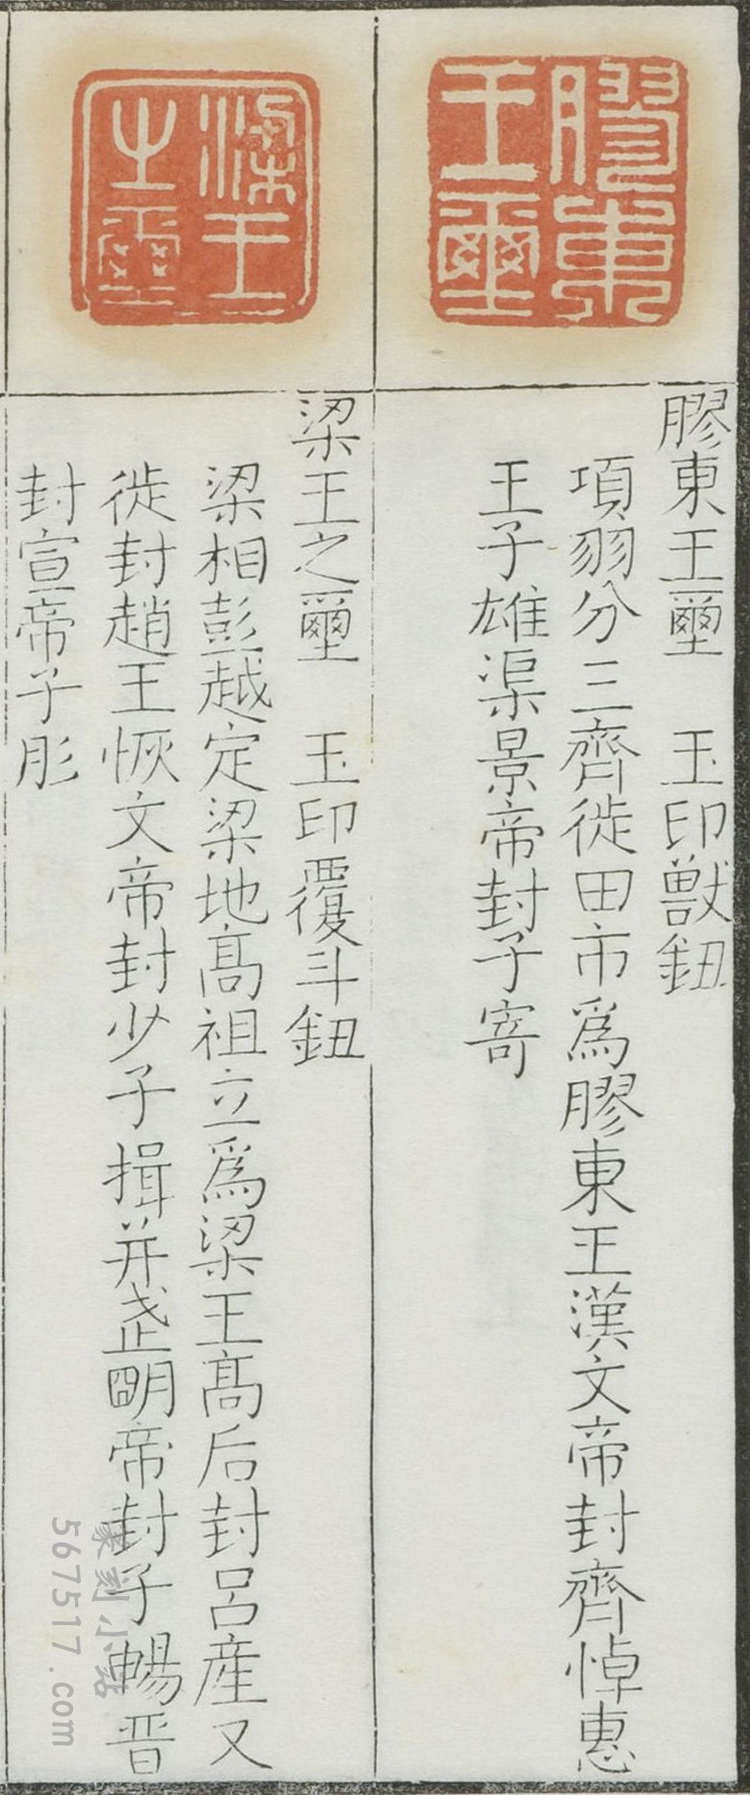 膠東王璽
膠東王璽　玉印獸鈕
項羽分三齊徙田市爲膠東王漢文帝封齊悼惠
王子雄渠景帝封子寄
梁王之璽
梁王之璽　玉印覆斗鈕
梁相彭越定梁地高祖立爲梁王高后封呂產又
徙封趙王恢文帝封少子揖并武明帝封子暢晋
封宣帝子肜
篆刻小站
567517.com